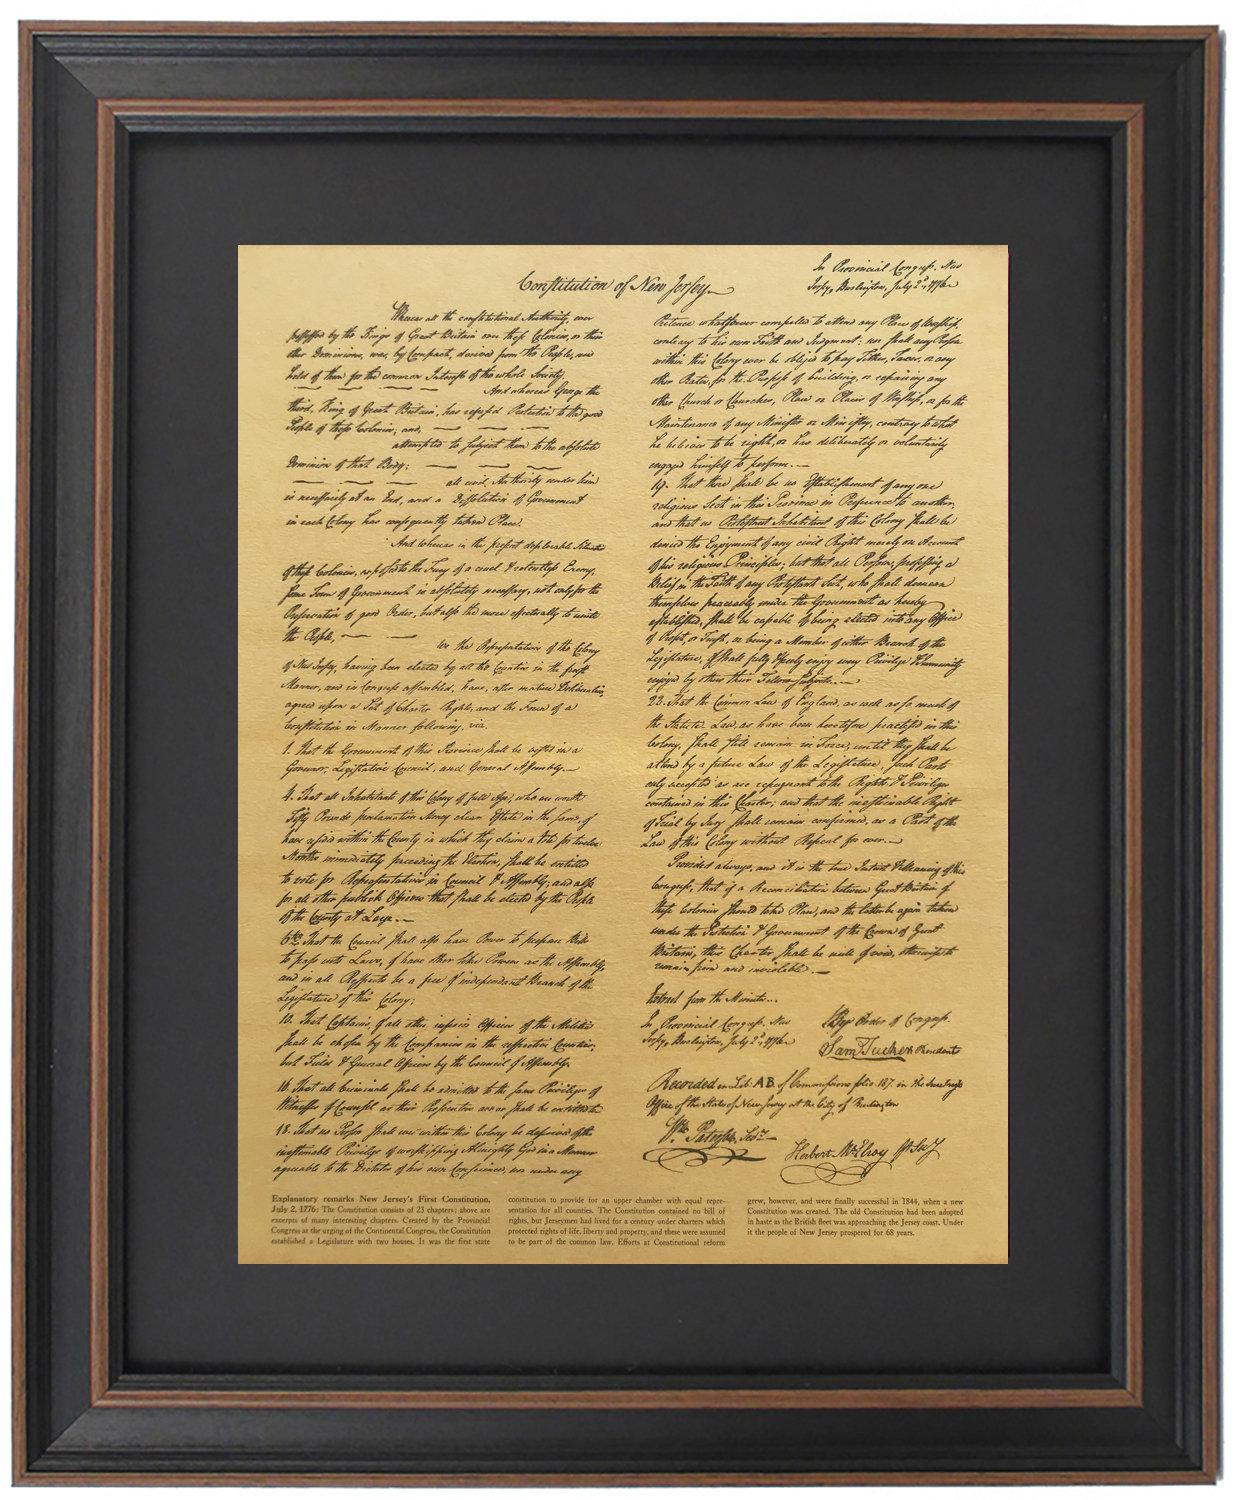 In Provincial Congress, New
Jersey, Burlington, July 2d, 1776
Constitution of New Jersey
Whereas all the constitutional Authority, ever
possessed by the Kings of Great Britain over these Colonies, or their
other Dominions, was, by Compact, derived from the People, and
held of them for the common Interest of the whole Society,
And whereas George the
third, King of Great Britain, has refused Protection to the good
People of these Colonies; and,
attempted to subject them to the absolute
Dominion of that Body;
all civil Authority under him
is necessarily at an End, and a Dissolution of Government
in each Colony has consequently taken Place.
And whereas in the present deplorable Situation
of these Colonies, exposed to the Fury of a cruel & relentless Enemy,
some Form of Government is absolutely necessary, not only for the
Preservation of good Order, but also the more effectually to unite
the People,
We the Representatives of the Colony
of New Jersey, having been elected by all the Counties in the freest
Manner, and in Congress assembled, have, after mature Deliberation,
agreed upon a Set of Charter Rights, and the Form of a
Constitution in Manner following, viz.
1. That the Government of this Province shall be vested in a
Governor, Legislative Council, and General Assembly.
4. That all Inhabitants of this Colony of full Age, who are worth
Fifty Pounds proclamation Money clear Estate in the same, &
have resided within the County in which they claim a Vote for twelve
Months immediately preceeding the Election, shall be entitled
to vote for Representatives in Council & Assembly; and also
for all other publick Officers that shall be elected by the People
of the County at Large.
6th. That the Council shall also have Power to prepare Bills
to pass into Laws, & have other like Powers as the Assembly,
and in all Respects be a free & independant Branch of the
Legislature of this Colony;
10. That Captains, & all other inferior Officers of the Militia
shall be chosen by the Companies in the respective Counties;
but Field & General Officers by the Council & Assembly.
16. That all Criminals shall be admitted to the same Privileges of
Witnesses & Counsel as their Prosecutors are or shall be entitled to
18. That no Person shall ever within this Colony be deprived of the
inestimable Privilege of worshipping Almighty God in a Manner
agreeable to the Dictates of his own Conscience, nor under any
Pretence whatsoever compelled to attend any Place of Worship,
contrary to his own Faith and Judgment; nor shall any Person
within this Colony ever be obliged to pay Tithes, Taxes, or any
other Rates, for the Purpose of building, or repairing any
other Church or Churches, Place or Places of Worship, or for the
Maintenance of any Minister or Ministry, contrary to what
he believes to be right, or has deliberately or voluntarily
engaged himself to perform.
19. That there shall be no Establishment of any one
religious Sect in this Province in Preference to another,
and that no Protestant Inhabitant of this Colony shall be
denied the Enjoyment of any civil Right merely on Account
of his religious Principles; but that all Persons, professing a
Belief in the Faith of any Protestant Sect, who shall demean
themselves peaceably under the Government as hereby
established, shall be capable of being elected into any Office
of Profit or Trust, or being a Member of either Branch of the
Legislature, & shall fully & freely enjoy every Privilege & Immunity
enjoyed by others their Fellow-Subjects.
22. That the Common Law of England, as well as so much of
the Statute Law, as have been heretofore practised in this
Colony, shall still remain in Force, until they shall be
altered by a future Law of the Legislature, such Parts
only excepted as are repugnant to the Rights & Privileges
contained in this Charter; and that the inestimable Right
of Trial by Jury shall remain confirmed, as a Part of the
Law of this Colony without Repeal for ever.
Provided always, and it is the true Intent & Meaning of this
Congress, that if a Reconciliation between Great Britain &
these Colonies should take Place, and the latter be again taken
under the Protection & Government of the Crown of Great
Britain, this Charter shall be null & void, otherwise to
remain firm and inviolable.
Extract from the Minutes.
In Provincial Congress, New
Jersey, Burlington, July 2d, 1776
By Order of Congress.
Sam. Tucker President
Recorded in Lib: AB of Commissions folio 187. in the Secretary's
Office of the State of New Jersey at the City of Burlington
Wm. Paterson, Secy.
Herbert McElroy
Explanatory remarks New Jersey's First Constitution,
July 2, 1776: The Constitution consists of 23 chapters; above are
excerpts of many interesting chapters. Created by the Provincial
Congress at the urging of the Continental Congress, the Constitution
established a Legislature with two houses. It was the first state
constitution to provide for an upper chamber with equal repre-
sentation for all counties. The Constitution contained no bill of
rights, but Jerseymen had lived for a century under charters which
protected rights of life, liberty and property, and these were assumed
to be part of the common law. Efforts at Constitutional reform
grew, however, and were finally successful in 1844, when a new
Constitution was created. The old Constitution had been adopted
in haste as the British fleet was approaching the Jersey coast. Under
it the people of New Jersey prospered for 68 years.